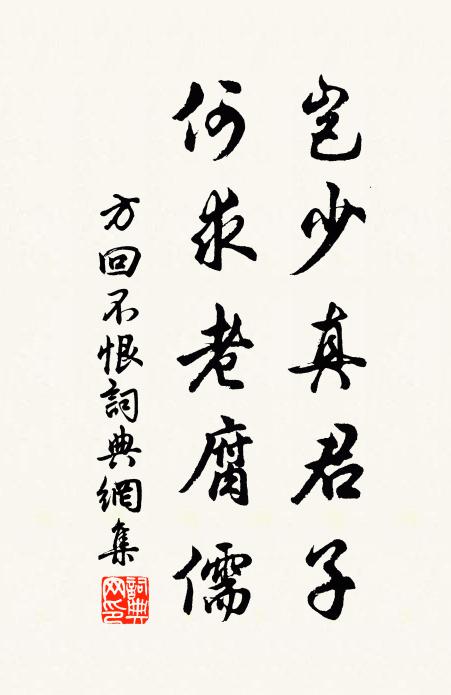 岂少真君子
何求老腐儒
方回不恨詞典網集
詞典網印